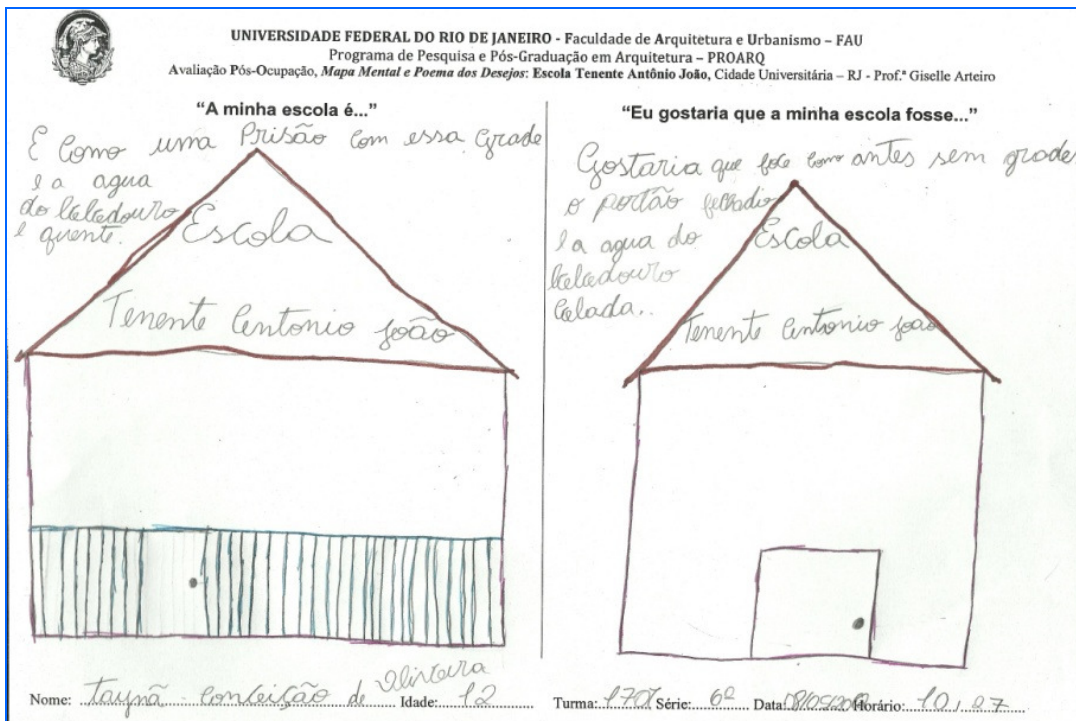 UNIVERSIDADE FEDERAL DO RIO DE JANEIRO - Faculdade de Arquitetura e Urbanismo – FAU
Programa de Pesquisa e Pós-Graduação em Arquitetura – PROARQ
Avaliação Pós-Ocupação, Mapa Mental e Poema dos Desejos: Escola Tenente Antônio João, Cidade Universitária – RJ - Prof.ª Giselle Arteiro
"A minha escola é..."
É como uma Prisão com essa Grade
e a agua
do bebedouro
e quente.
Escola
Tenente Antonio João
"Eu gostaria que a minha escola fosse..."
Gostaria que foce como antes sem grades
o portão
e a agua do
bebedouro
Gelada..
Escola
Tenente Antonio João
Nome: Taynã Conceição de Oliveira Idade: 12 Turma: 1701 Série: 6º Data: Horário: 10,27